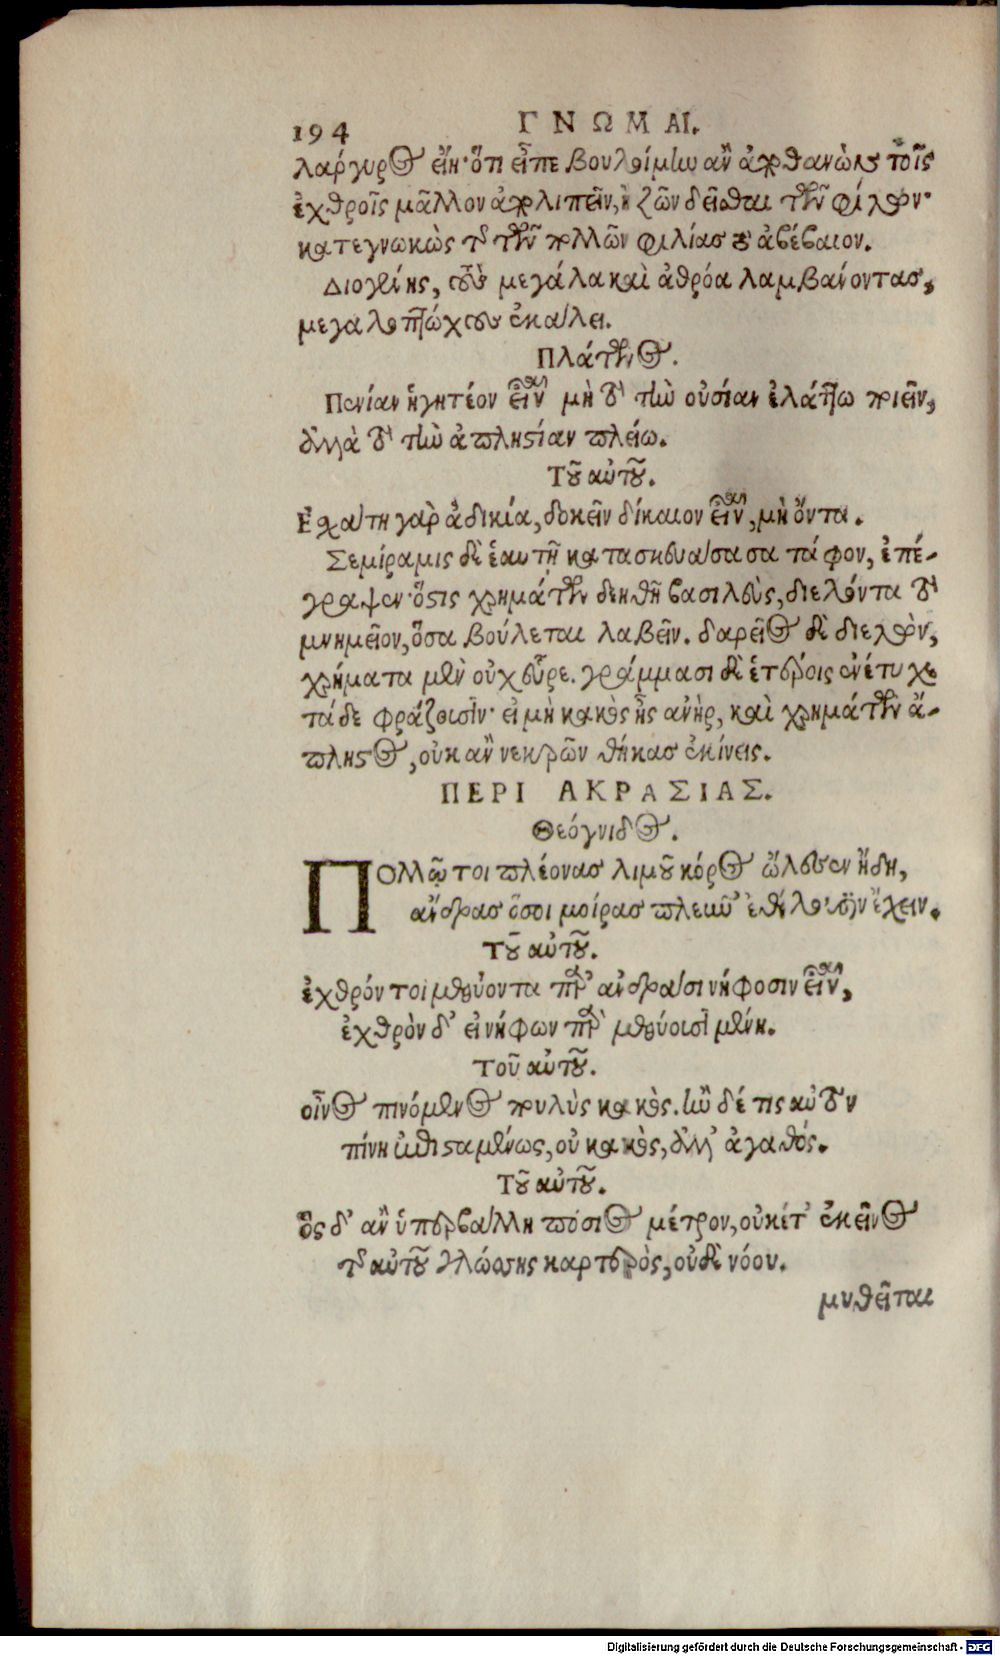 194 ΓΝΩΜΑΙ.
λάργυρος εἴη· ὅτι εἶπε βουλοίμην ἂν ἀποθανὼν τοῖς
ἐχθροῖς μᾶλλον ἀπολιπεῖν, ἢ ζῶν δεῖσθαι τῶν φίλων·
κατεγνωκὼς τῆς τῶν πολλῶν φιλίας τὸ ἀβέβαιον.
Διογένης, τοὺς μεγάλα καὶ ἀθρόα λαμβάνοντας,
μεγαλοπτώχους ἐκάλει.
Πλάτωνος.
Πενίαν ἡγητέον εἶναι μὴ τὸ τὴν οὐσίαν ἐλάττω ποιεῖν,
ἀλλὰ τὸ τὴν ἀπληστίαν πλείω.
Τοῦ αὐτοῦ.
Ἐσχάτη γὰρ ἀδικία, δοκεῖν δίκαιον εἶναι, μὴ ὄντα.
Σεμίραμις δὲ ἑαυτῇ κατασκευάσασα τάφον, ἐπέ-
γραψεν· ὅστις χρημάτων δεηθῇ βασιλεὺς, διελόντα τὸ
μνημεῖον, ὅσα βούλεται λαβεῖν. δαρεῖος δὲ διελὼν,
χρήματα μὲν οὐχ εὗρε. γράμμασι δὲ ἑτέροις ἐνέτυχε
τάδε φράζουσιν· εἰ μὴ κακὸς ἦς ἀνὴρ, καὶ χρημάτων ἄ-
πληστος, οὐκ ἂν νεκρῶν θήκας ἐκίνεις.
ΠΕΡΙ ΑΚΡΑΣΙΑΣ.
Θεόγνιδος.
ΠΟλλῷ τοι πλέονας λιμοῦ κόρος ὤλεσεν ἤδη,
ἄνδρας ὅσοι μοίρας πλεῖον ἔθελον ἔχειν.
Τοῦ αὐτοῦ.
ἐχθρόν τοι μεθύοντα παρ' ἀνδράσι νήφοσιν εἶναι,
ἐχθρὸν δ' εἰ νήφων παρὰ μεθύουσι μένη.
τοῦ αὐτοῦ.
οἶνος πινόμενος πουλὺς κακός. ἢν δέ τις αὐτὸν
πίνη ἐπισταμένως, οὐ κακὸς, ἀλλ' ἀγαθός.
Τοῦ αὐτοῦ.
ὃς δ' ἂν ὑπερβάλλη πόσιος μέτρον, οὐκέτ' ἐκεῖνος
τῆς αὐτοῦ γλώσσης καρτερὸς, οὐδὲ νόου.
μυθεῖται
Digitalisierung gefördert durch die Deutsche Forschungsgemeinschaft · DFG